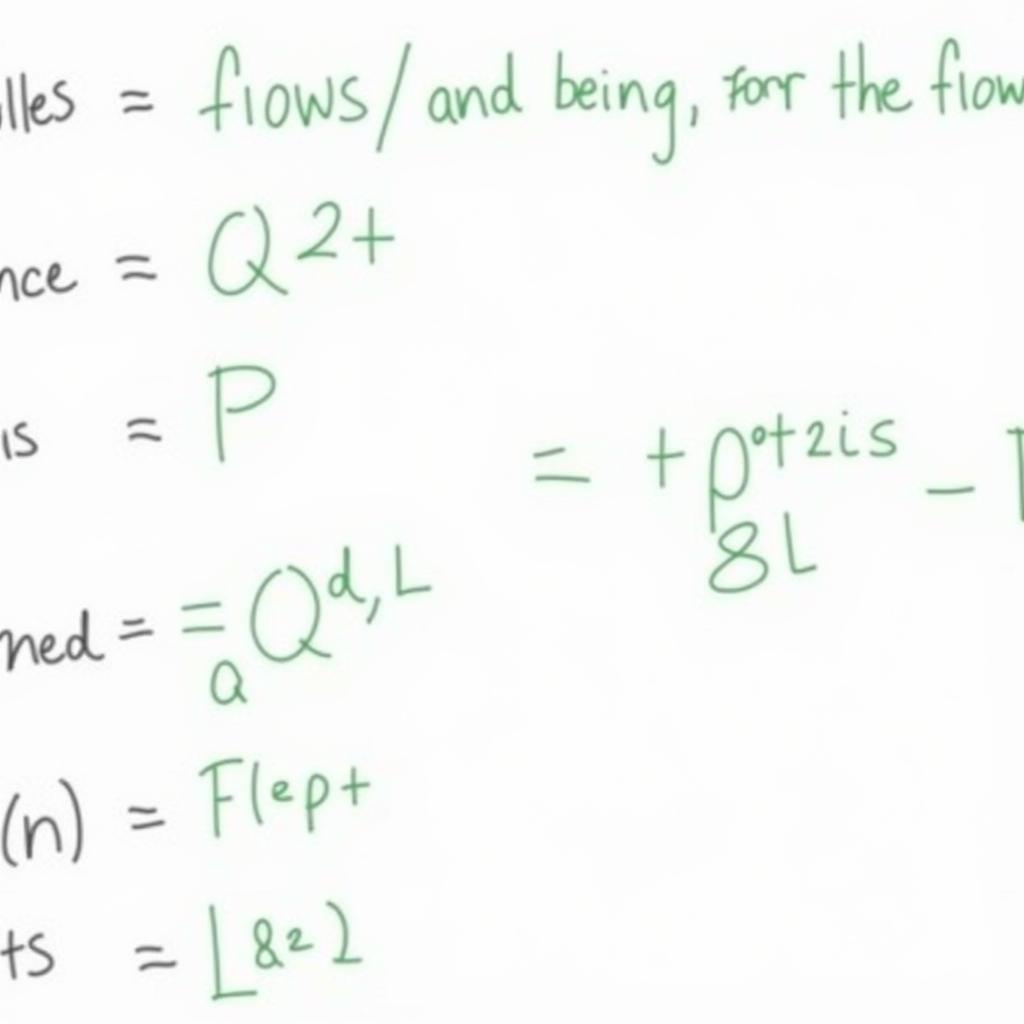 lles = flows/and being, forr the flow
nce = Q²⁺
is = P
= + p^(o+2is) - 
8L
ned = = Q^(d,L)
a
(n) = Flep+
ts = L&2